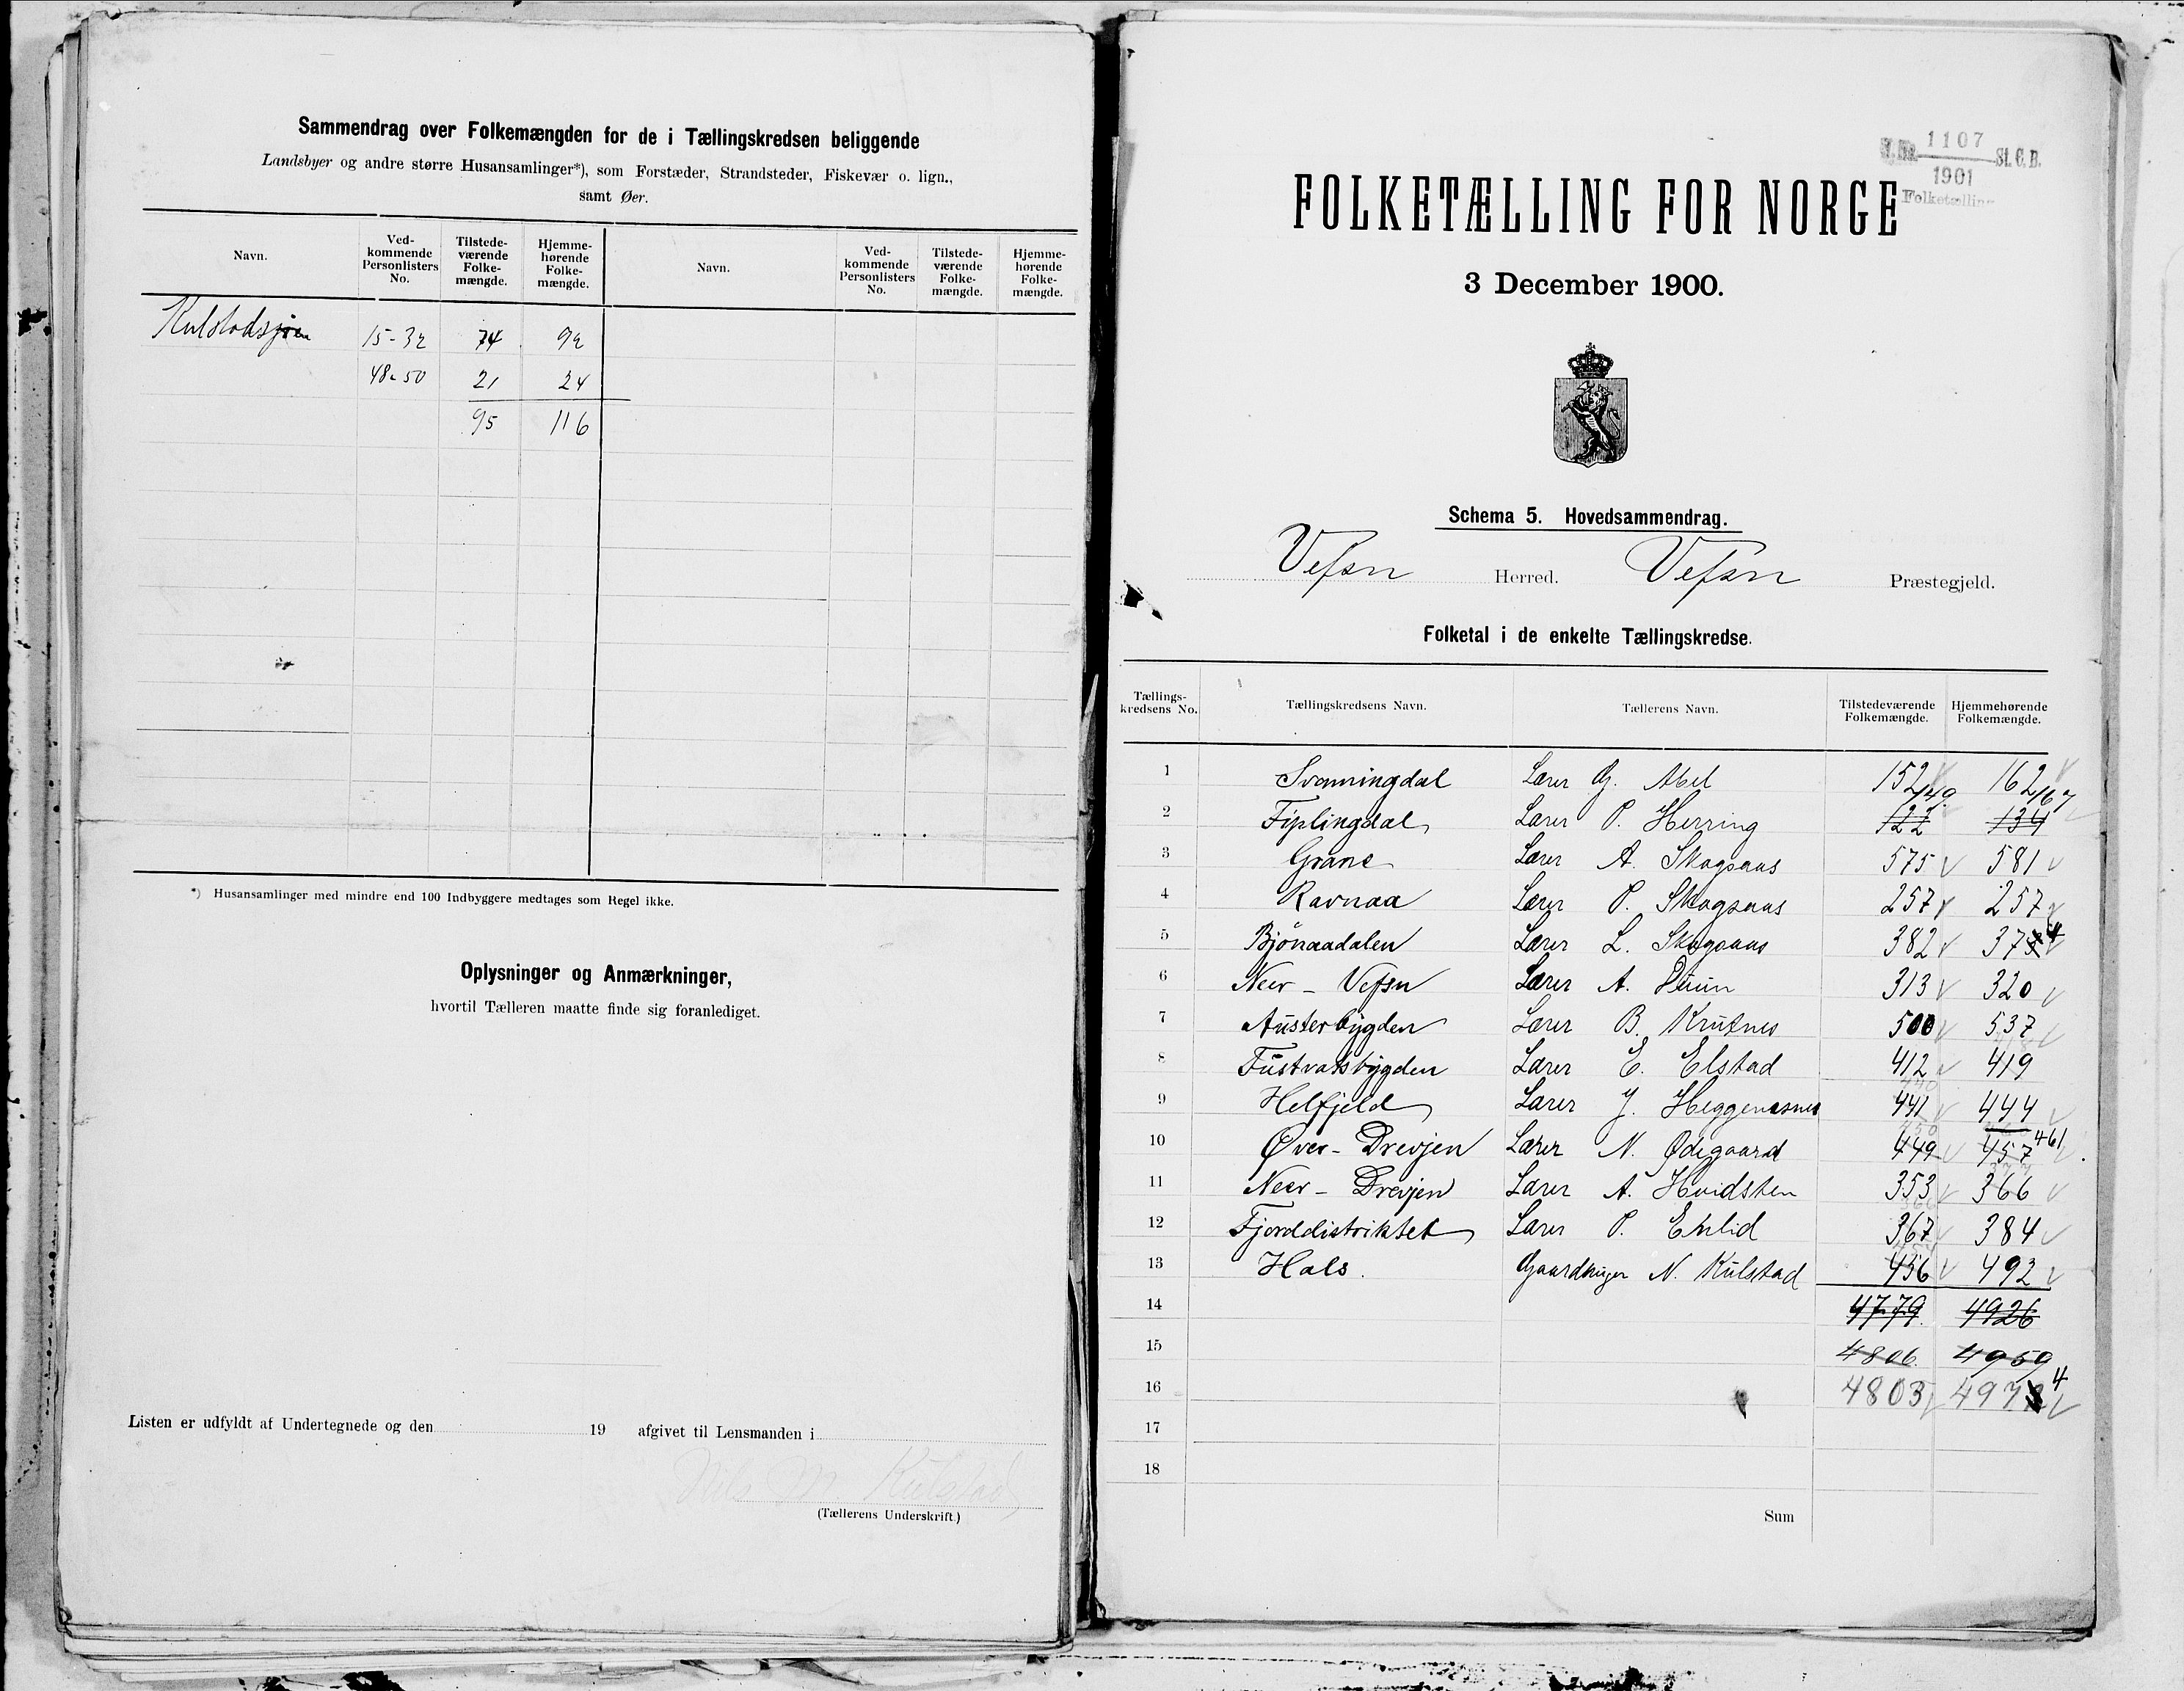 Sammendrag over Folkemængden for de i Tællingskredsen beliggende
Landsbyer og andre større Husansamlinger*), som Forstæder, Strandsteder, Fiskevær o. lign.,
samt Øer.
Navn. Ved-kommende Personlisters No. Tilstede-værende Folke-mængde. Hjemme-hørende Folke-mængde. Navn. Ved-kommende Personlisters No. Tilstede-værende Folke-mængde. Hjemme-hørende Folke-mængde.
Kulstadsjøen 15-32 74 92
48-50 21 24
95 116
*) Husansamlinger med mindre end 100 Indbyggere medtages som Regel ikke.
Oplysninger og Anmærkninger,
hvortil Tælleren maatte finde sig foranlediget.
Listen er udfyldt af Undertegnede og den 19 afgivet til Lensmanden i
Nils M. Kulstad
(Tællerens Underskrift.)
J. No. 1107 St. C. B.
1901
Folketælling
FOLKETÆLLING FOR NORGE
3 December 1900.
Schema 5. Hovedsammendrag.
Vefsn Herred. Vefsn Præstegjeld.
Folketal i de enkelte Tællingskredse.
Tællings-kredsens No. Tællingskredsens Navn. Tællerens Navn. Tilstedeværende Folkemængde. Hjemmehørende Folkemængde.
1 Svenningdal Lærer G. Abel 152 162
149 167
2 Fiplingdal Lærer P. Herring 122 134
3 Grane Lærer A. Skogsaas 575 581
4 Ravnaa Lærer P. Skogsaas 257 257
5 Bjönaadalen Lærer L. Skogsaas 382 374
6 Neer-Vefsn Lærer A. Duun 313 320
7 Austerbygden Lærer B. Krutnes 500 537
8 Fustvatsbygden Lærer E. Elstad 412 419
9 Helfjeld Lærer J. Heggenesnes 441 444
10 Øver-Drevjen Lærer N. Ødegaard 449 457 461
11 Neer-Drevjen Lærer A. Hvidsten 353 366
12 Fjorddistriktet Lærer P. Enlid 367 384
13 Hals. Gaardbruger N. Kulstad 456 492
14 4779 4926
15 4806 4959
16 4803 4974
17
18
Sum